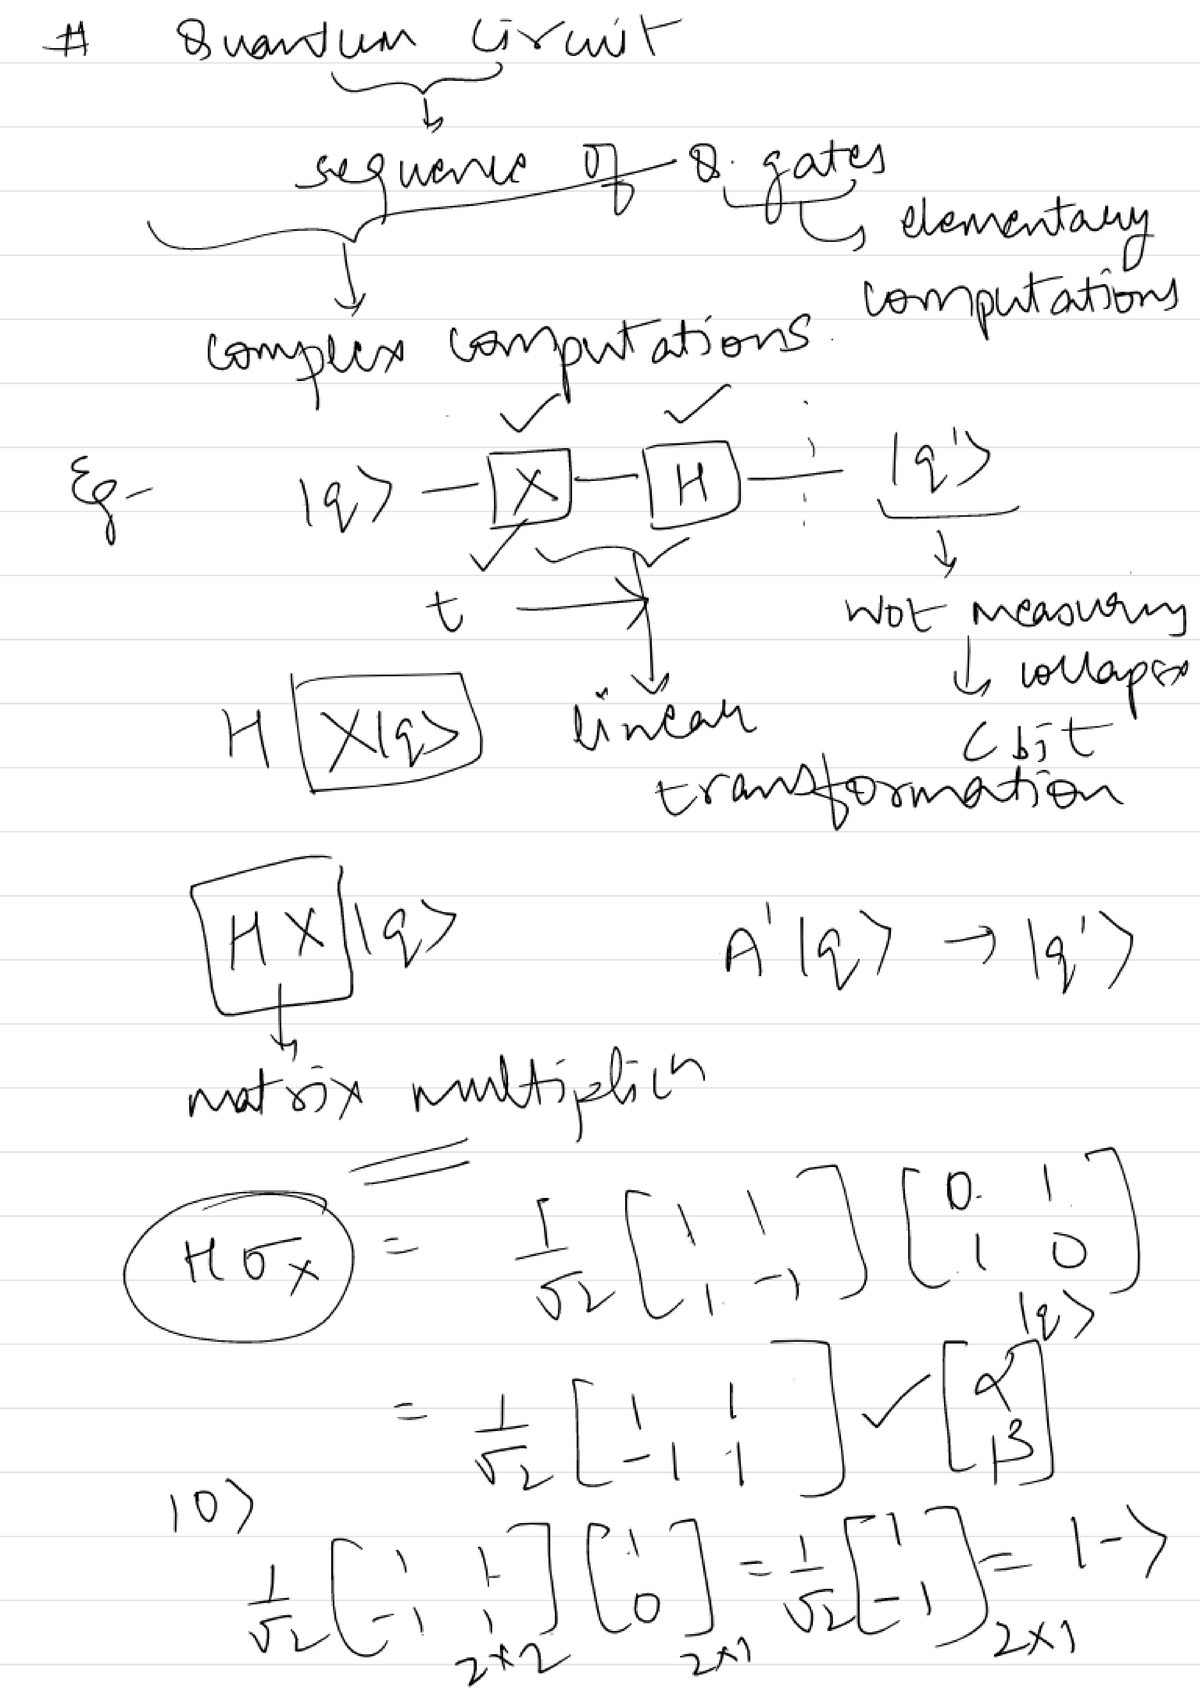 # Quantum Circuit
sequence of Q. gates
elementary
computations
complex computations.
Eg- |q> — X — H — |q'>
t
Not measuring
collapse
C bit
H X|q> linear
transformation
HX|q> A'|q> → |q'>
matrix multiplicn
Hσx = 1/√2 [1 1; 1 -1] [0 1; 1 0]
|q>
= 1/√2 [1 1; -1 1] [α; β]
|0>
1/√2 [1 1; -1 1] 2x2 [1; 0] 2x1 = 1/√2 [1; -1] 2x1 = |->